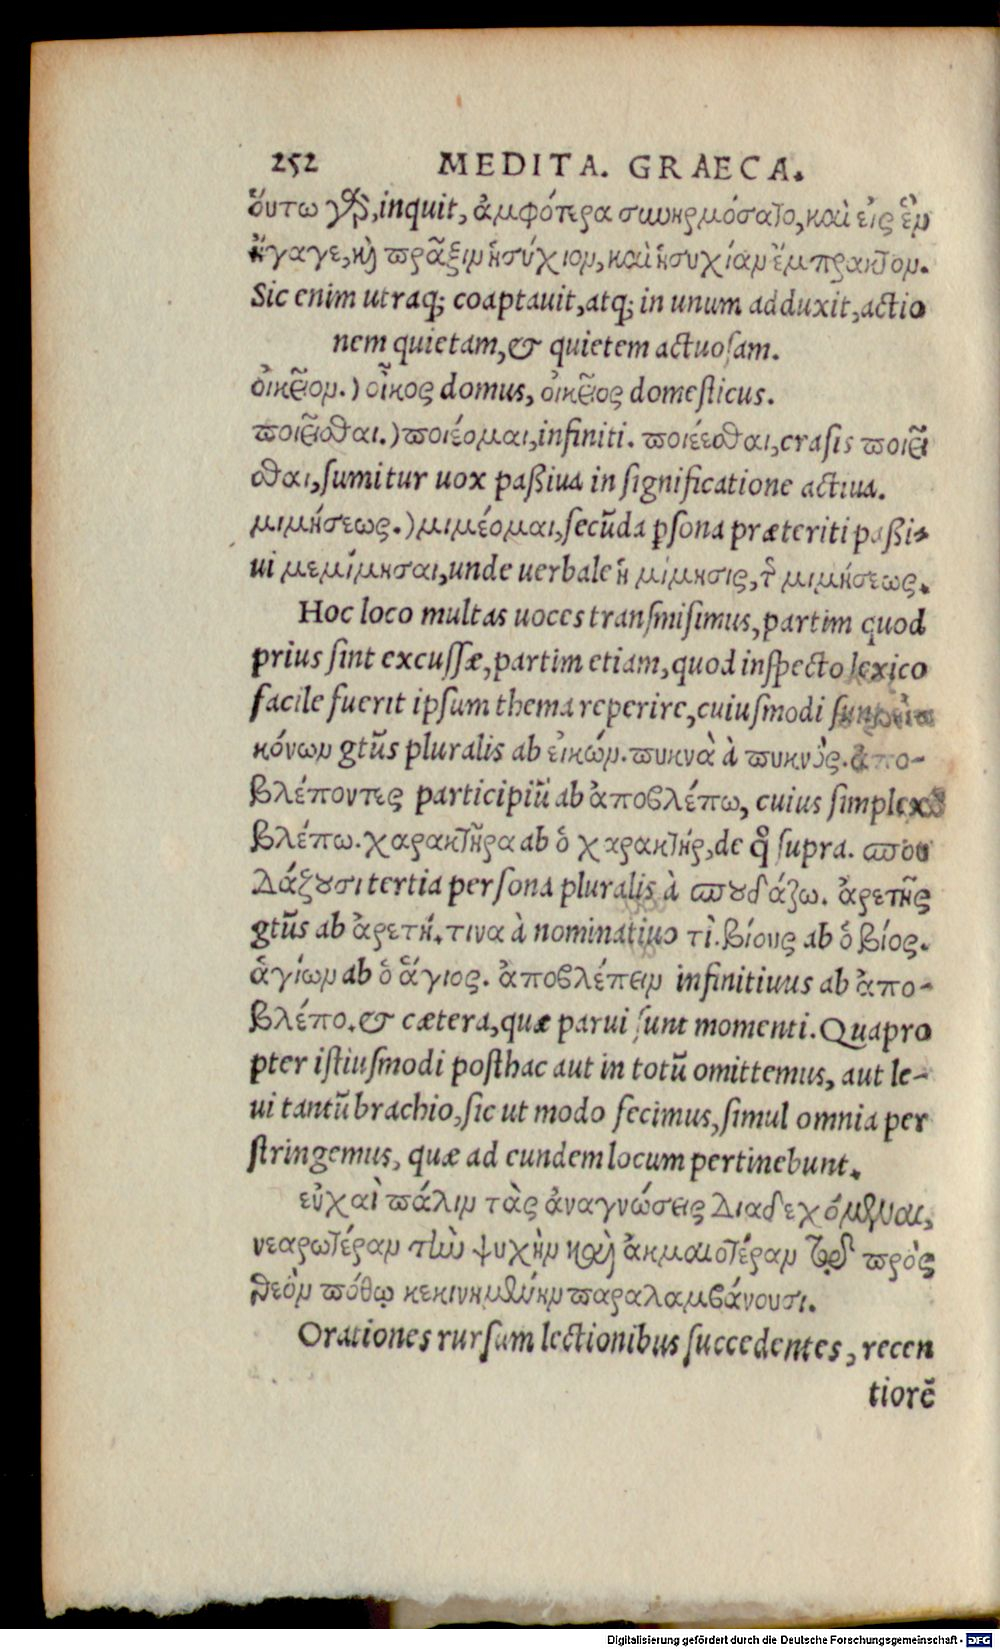 252 MEDITA. GRAECA.
ὅυτω γὰρ, inquit, ἀμφότερα συνηρμόσατο, καὶ εἰς ἓν
ἤγαγε, κὶ πρᾶξιν ἡσύχιον, καὶ ἡσυχίαν ἔμπρακτον.
Sic enim utraq; coaptauit, atq; in unum adduxit, actio
nem quietam, & quietem actuosam.
ὀικεῖον.) οἶκος domus, ὀικεῖος domesticus.
ποιεῖσθαι.) ποιέομαι, infiniti. ποιέεσθαι, crasis ποιεῖ
σθαι, sumitur uox paßiua in significatione actiua.
μιμήσεως.) μιμέομαι, secūda psona præteriti paßi-
ui μεμίμησαι, unde uerbale ἡ μίμησις, τῆ μιμήσεως.
Hoc loco multas uoces transmisimus, partim quod
prius sint excussæ, partim etiam, quod inspecto lexico
facile fuerit ipsum thema reperire, cuiusmodi sunt εἰ
κόνων gtūs pluralis ab εἰκών. πυκνὰ à πυκνός. ἀπο-
βλέποντες participiū ab ἀποβλέπω, cuius simplex
βλέπω. χαρακτῆρα ab ὁ χαρακτήρ, de qo supra. σπου
δάζουσι tertia persona pluralis à σπουδάζω. ἀρετῆς
gtūs ab ἀρετή. τινα à nominatiuo τὶ. βίους ab ὁ βίος.
ἁγίων ab ὁ ἅγιος. ἀποβλέπειν infinitiuus ab ἀπο-
βλέπο. & cætera, quæ parui sunt momenti. Quapro
pter istiusmodi posthac aut in totū omittemus, aut le-
ui tantū brachio, sic ut modo fecimus, simul omnia per
stringemus, quæ ad eundem locum pertinebunt.
εὐχαὶ πάλιν τὰς ἀναγνώσεις διαδεχόμεναι,
νεαρωτέραν τὴν ψυχὴν καὶ ἀκμαιοτέραν τῷ πρὸς
θεὸν πόθῳ κεκινημένην παραλαμβάνουσι.
Orationes rursum lectionibus succedentes, recen
tiorē
Digitalisierung gefördert durch die Deutsche Forschungsgemeinschaft - DFG